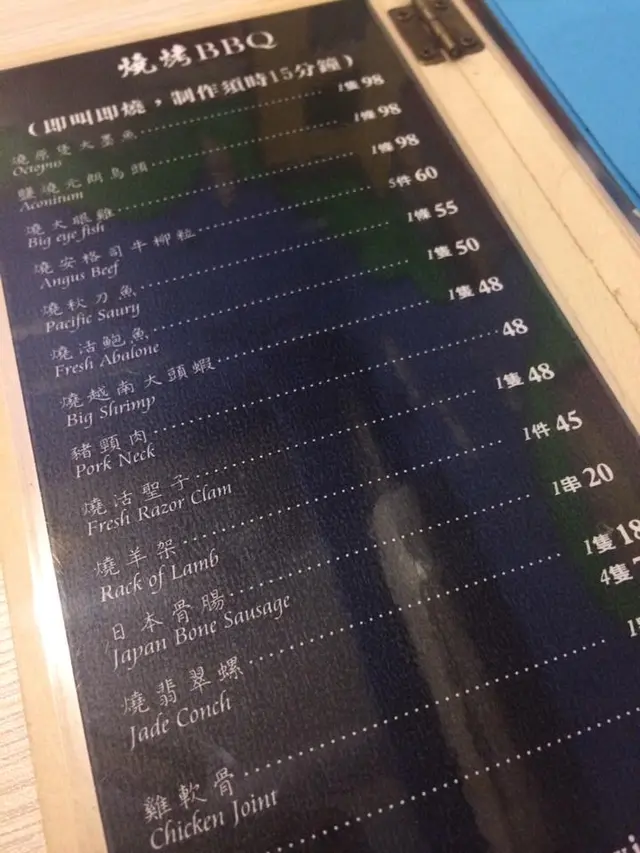 燒烤BBQ
(即叫即燒，制作須時15分鐘)
燒原隻大墨魚 1隻 98
Octopus
鹽燒元朗烏頭 1條 98
Aconitum
燒大眼雞 1條 98
Big eye fish
燒安格司牛柳粒 5件 60
Angus Beef
燒秋刀魚 1條 55
Pacific Saury
燒活鮑魚 1隻 50
Fresh Abalone
燒越南大頭蝦 1隻 48
Big Shrimp
豬頸肉 48
Pork Neck
燒活聖子 1隻 48
Fresh Razor Clam
燒羊架 1件 45
Rack of Lamb
日本骨腸 1串 20
Japan Bone Sausage
燒翡翠螺 1隻 18
4隻
Jade Conch
雞軟骨
Chicken Joint